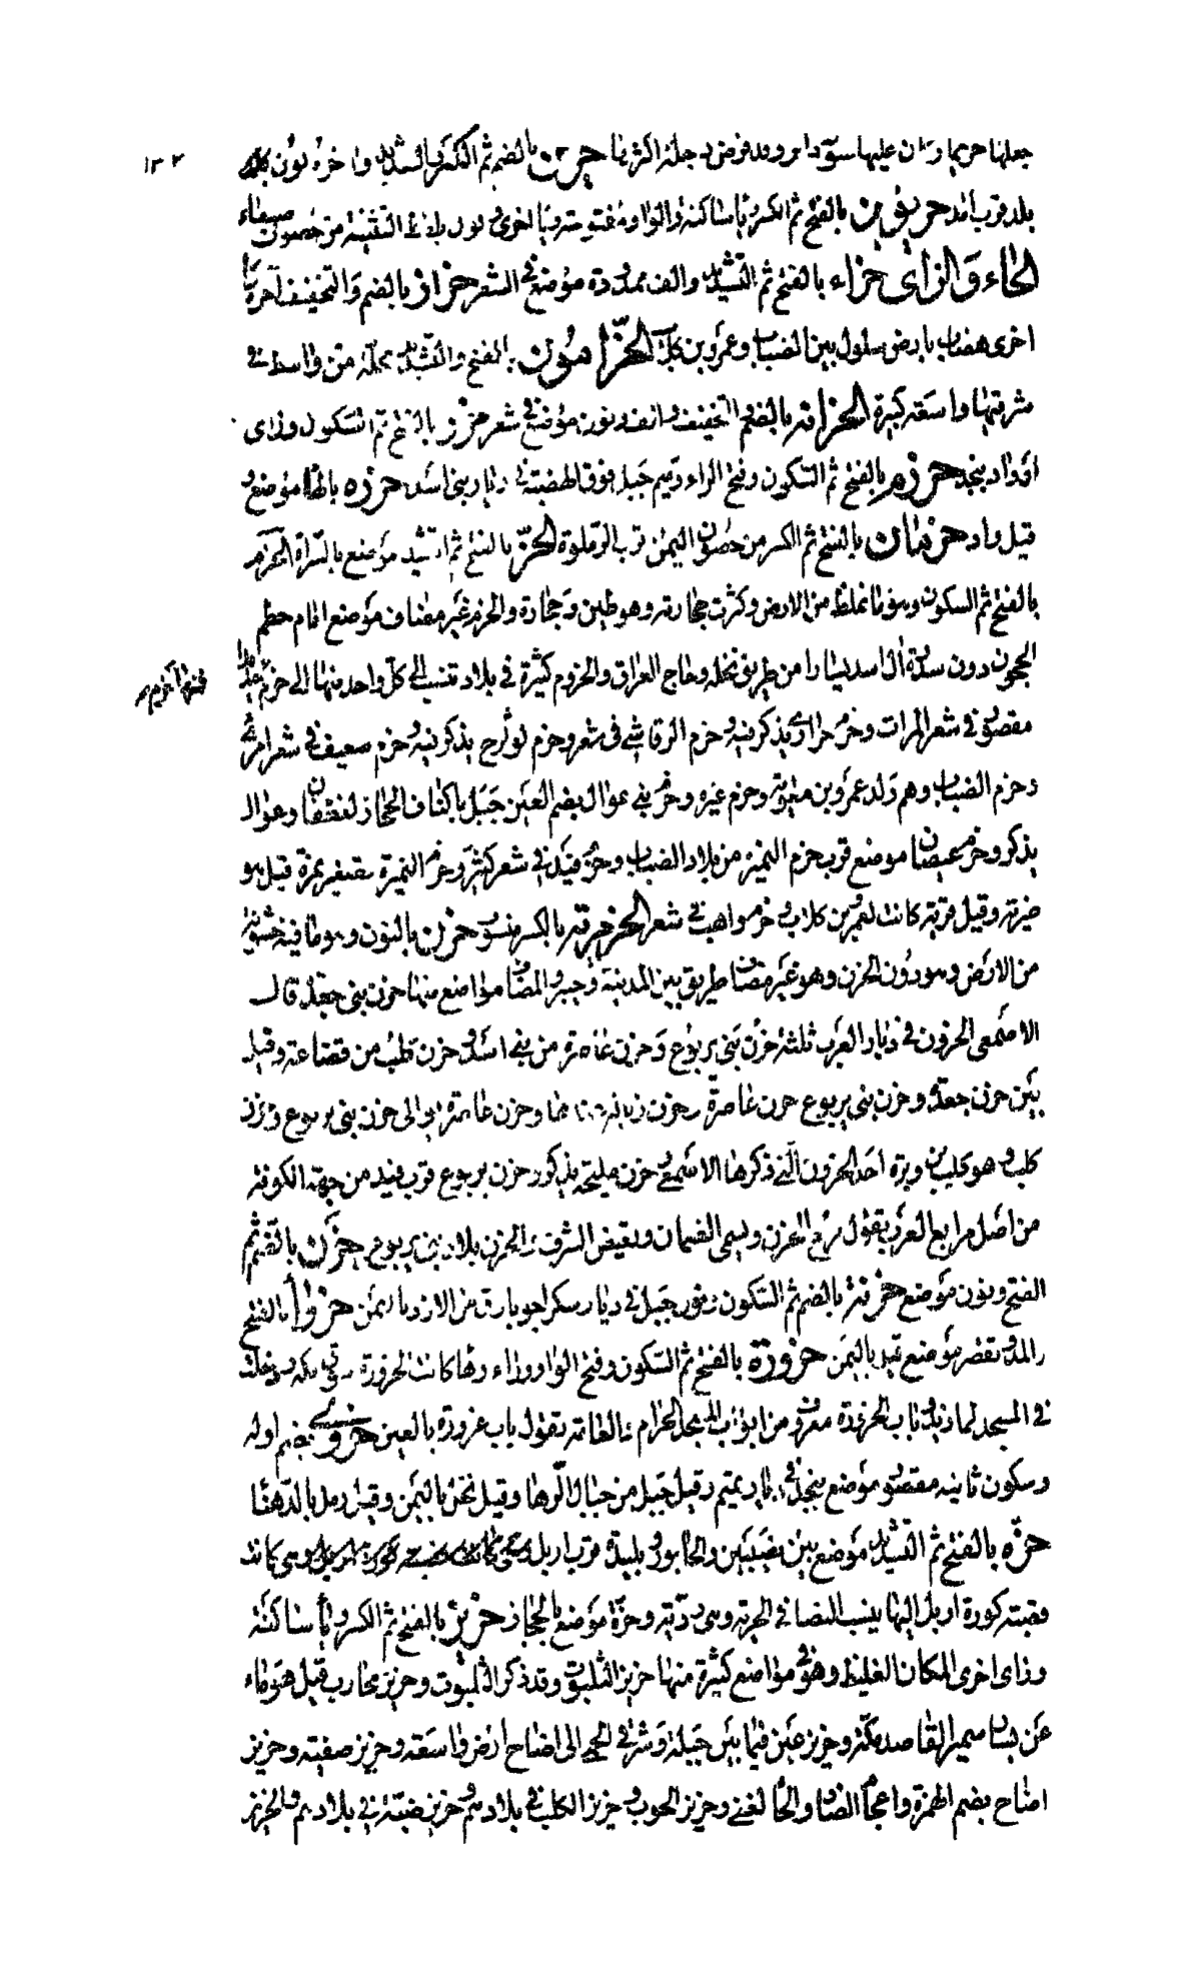 ١٣٢
جعلها حريما دان عليها سور
بالضم ثم الكسر والتشديد واخره نون بلد
بلد قرب آمد حريوين بالفتح ثم الكسر وياء ساكنة والواو مفتوحة وياء اخرى ونون بلفظ التثنية من حصون صنعاء
الحاء والزاي حزاء بالفتح ثم التشديد والف ممدودة موضع في الشعر حزاز بالضم والتخفيف اخره زاي
اخرى هضاب بارض سلول بين الضباب وعمرو بن كلاب الحزامون بالفتح والتشديد محلة من واسط في
شرقيها واسعة كبيرة الحزانة بالضم والتخفيف والف ونون موضع في شعر حزز بالفتح ثم السكون وزاى
او واد بنجد حزرم بالفتح ثم السكون وفتح الراء وميم جبل فوق الهضبة في ديار بني اسد حزره بالهاء موضع و
قيل واد حزمان بالفتح ثم الكسر من حصون اليمن قرب الدملوة الحز بالفتح ثم التشديد موضع بالسراة الحزم
بالفتح ثم السكون وهو ما غلظ من الارض وكثرت حجارته وهو طين وحجارة والحزم غير مضاف موضع امام خطم
الحجون دون سدرة آل اسد يسارا من طريق نخلة وحاج العراق والحزوم كثيرة في بلاد تنسب الى كل واحد منها الى حزم
فمنها حزم
مقصور في شعر المرات وحزم حزازى يذكر فيه وحزم الرقاشي في شعر وحزم يذكر فيه وحزم في شعر
وحزم الضباب وهم ولد عمرو بن معوية وحزم عنيزه وحزم بني عوال بضم العين جبل باكناف الحجاز لغطفان وعوال
يذكر وحزم عيصان موضع قرب حزم النميرة من بلاد الضباب وحزم فيدة في شعر كثير وحزم النميرة تصغير نمرة قيل هو
ضرية وقيل قرية كانت لعمرو بن كلاب وحزم واهب في شعر الحزمرية بالكسر منسوب حزن بالنون وهو ما فيه خشونة
من الارض وهو دون الحزن وهو غير مضاف طريق بين المدينة وخيبر والمضاف مواضع منها حزن بني جعدة قال
الاصمعي الحزون في ديار العرب ثلثة حزن بني يربوع وحزن غاضرة من بني اسد وحزن كلب من قضاعة وقيل
بين حزن جعدة وحزن بني يربوع حزن غاضرة وحزن زبالة وحزن غاضرة يوالى حزن بني يربوع وحزن
كلب وهو كلب بن وبرة احد الحزون التي ذكرها الاصمعي وحزن مليحة يذكر وحزن يربوع قرب فيد من جهة الكوفة
من افضل مرابع العرب يقول تربع الحزن ويسمى الصمان ونقيض الشرف والحزن بلاد بني يربوع حزن بالضم ثم
الفتح ونون موضع حزنة بالضم ثم السكون ونون جبل في ديار سكر اخو بارق من الازد باليمن حزوا بالفتح
والمد وتقصر موضع قيل باليمن حزورة بالفتح ثم السكون وفتح الواو وراء وهاء كانت الحزورة سوق مكة ودخلت
في المسجد لما زيد وباب الحزورة معروف من ابواب المسجد الحرام والعامة تقول باب عزورة بالعين حزوى بضم اوله
وسكون ثانيه مقصور موضع بنجد في ديار تميم وقيل جبل من جبال الدهنا وقيل نخل باليمن وقيل رمل بالدهنا
حزه بالفتح ثم التشديد موضع بين نصيبين والخابور وبليدة قرب اربل وهي كانت
قصبة كورة اربل اليها ينسب النصافي الحزية وهي ردية وحزة موضع بالحجاز حزيز بالفتح ثم الكسر وياء ساكنة
وزاى اخرى المكان الغليظ وهو في مواضع كثيرة منها حزيز الثلبوت وقد ذكر الثلبوت وحزيز محارب قيل هو ماء
عن يسار سميرا للقاصد مكة وحزيز عين فيما بين جبلة وشرقي الحمى الى اضاخ ارض واسعة وحزيز صفية وحزيز
اضاخ بضم الهمزة واعجام الضاد والخاء لغنى وحزيز الحوب وحزيز الكلب في بلاد تيم وحزيز ضبة في بلاد تيم والحزيز